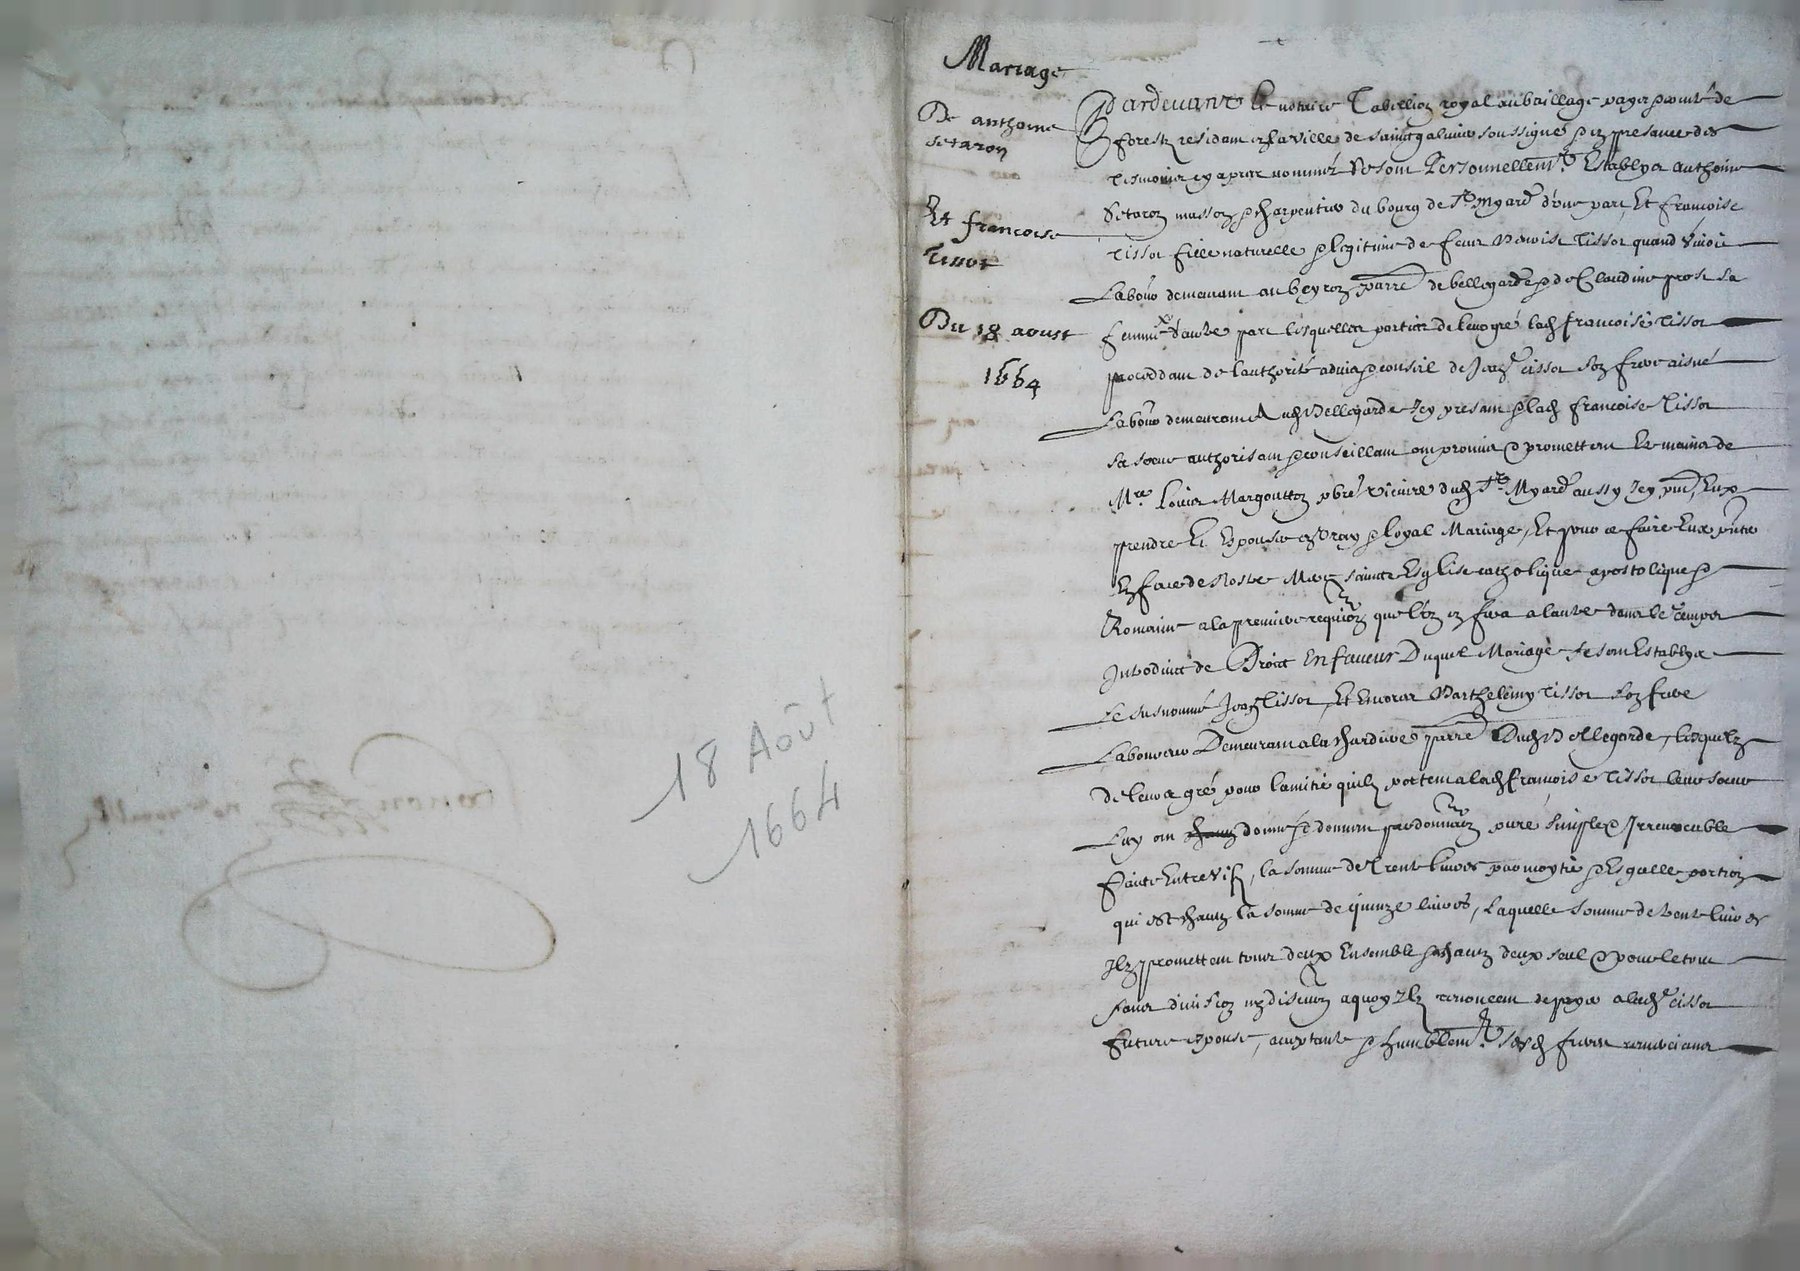 18 Aôut
1664
Mariage
De anthoine
setaron
Et francoise
Tissot
Du 18 aoust
1664
Pardevant le notaire Tabellion royal au bailliage pays et comté de
forestz residant en la ville de sainct galmier soussigné et en presance des
tesmoins cy apres nommés se sont Personnellemt. Establys anthoine
Setaron masson et charpentier du bourg de St. Myard d'une part, Et francoise
Tissot fille naturelle et legitime de feuz Tissot quand vivoit
Labour demeurant au parre. de bellegarde et de Claudine sa
femme d'autre part lesquelles parties de leur gré lad. francoise Tissot
proceddant de l'authorité advis et conseil de Jean tissot son frere aisné
Labour demeurant aud. Bellegarde Icy presant et lad. francoise Tissot
sa soeur authorisant et conseillant ont promis et promettent es mains de
Mre. Louis Margoutton pbre. vicaire dud. St. Myard aussy Icy
prendre Et Espouser en vray et loyal Mariage, Et pour ce faire
En face de Nostre Mere saincte Esglise catholique apostolique et
Romaine a la premiere requion. que l'on en fera a l'autre dans le temps
Introduict de Droict En faveur Duquel Mariage se sont Establys
Le susnommé Jean Tissot, Et encores Barthelemy Tissot son frere
Laboureur Demeurant a la parre. Dud. Bellegarde, lesquelz
de leurs gré pour l'amitié quilz portent a lad. francoise Tissot leur soeur
Luy ont donné et donnent par donnaon. pure simple et Irrevocable
faicte Entre vifz, la somme de Trente livres par moytie et Esgalle portion
qui est chacun la somme de quinze livres, Laquelle somme de trente livres
Ilz promettent tous deux Ensemble et chacun deux seul et pour le tout
sans division ny discution a quoy Ilz renoncent de payer a lad. tissot
future espouse, acceptante et humblemt. sesd. freres remerciant